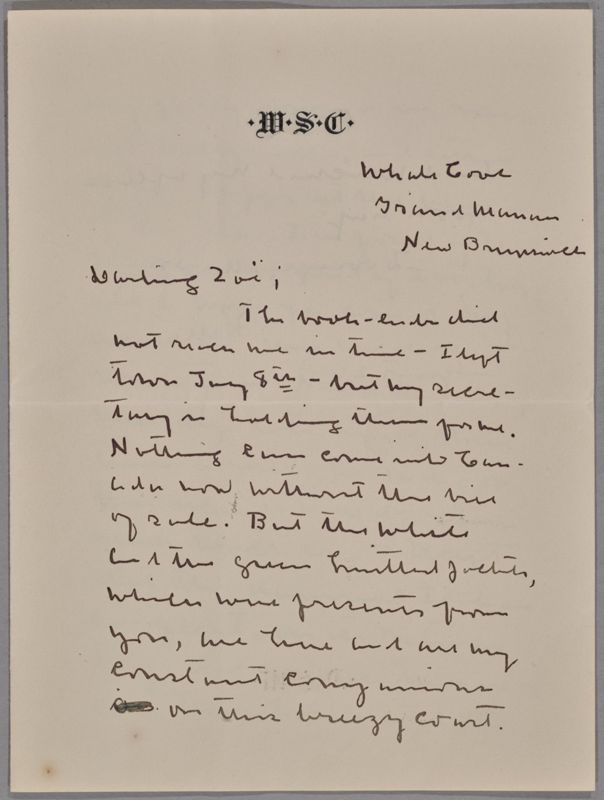 ·W·S·C·
Whale Cove
Grand Manan
New Brunswick
Darling Zoë;
The book-ends did
not reach me in time – I left
town July 8th – but my secre-
tary is holding them for me.
Nothing can come into Can-
ada now without the bill
of sale. But the white
and the green knitted jackets,
which were presents from
you, are here and are my
constant companions
on this breezy coast.